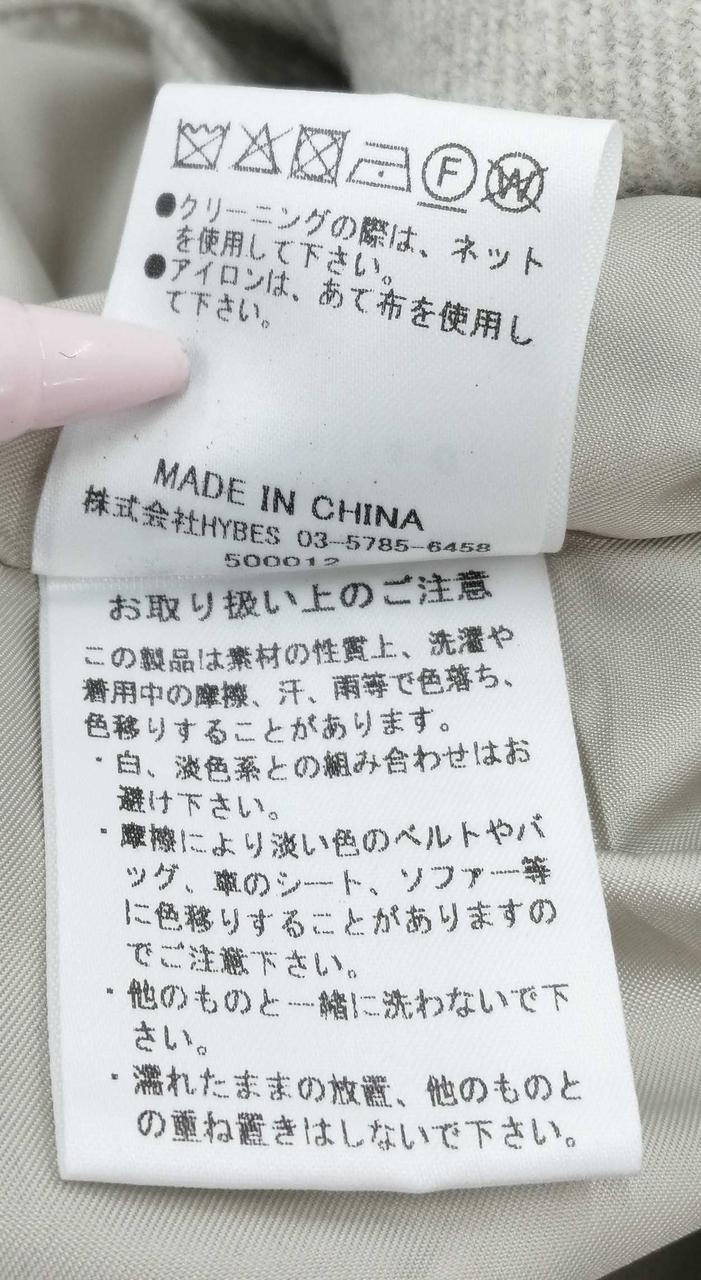 F
W
●クリーニングの際は、ネット
を使用して下さい。
●アイロンは、あて布を使用し
て下さい。
MADE IN CHINA
株式会社HYBES 03-5785-6458
500012
お取り扱い上のご注意
この製品は素材の性質上、洗濯や
着用中の摩擦、汗、雨等で色落ち、
色移りすることがあります。
・白、淡色系との組み合わせはお
避け下さい。
・摩擦により淡い色のベルトやバ
ッグ、車のシート、ソファー等
に色移りすることがありますの
でご注意下さい。
・他のものと一緒に洗わないで下
さい。
・濡れたままの放置、他のものと
の重ね置きはしないで下さい。